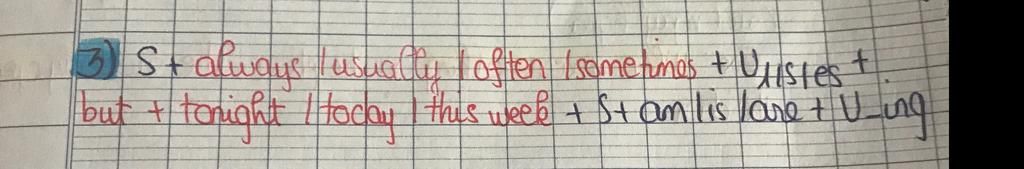 3) S + always / usually / often / sometimes + V/s/es + .
but + tonight / today / this week + S + am / is / are + V-ing